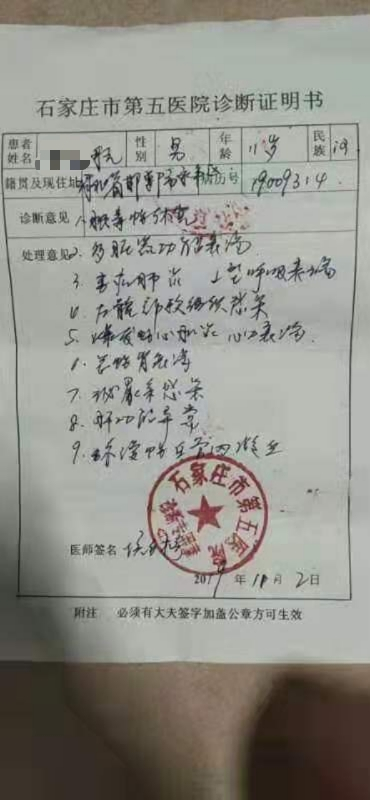 石家庄市第五医院诊断证明书
患者姓名 性别 男 年龄 11岁 民族 汉
籍贯及现住址 河北省邯郸市 病历号 19009314
诊断意见 1. 脓毒性休克
处理意见 2. 多脏器功能衰竭
3. 重症肺炎 I型呼吸衰竭
4. 左髋部软组织感染
5. 爆发性心肌炎 心力衰竭
6. 急性肾衰竭
7. 泌尿系感染
8. 肝功能异常
9. 弥漫性血管内凝血
石家庄市第五医院
医师签名
2019年11月2日
附注 必须有大夫签字加盖公章方可生效